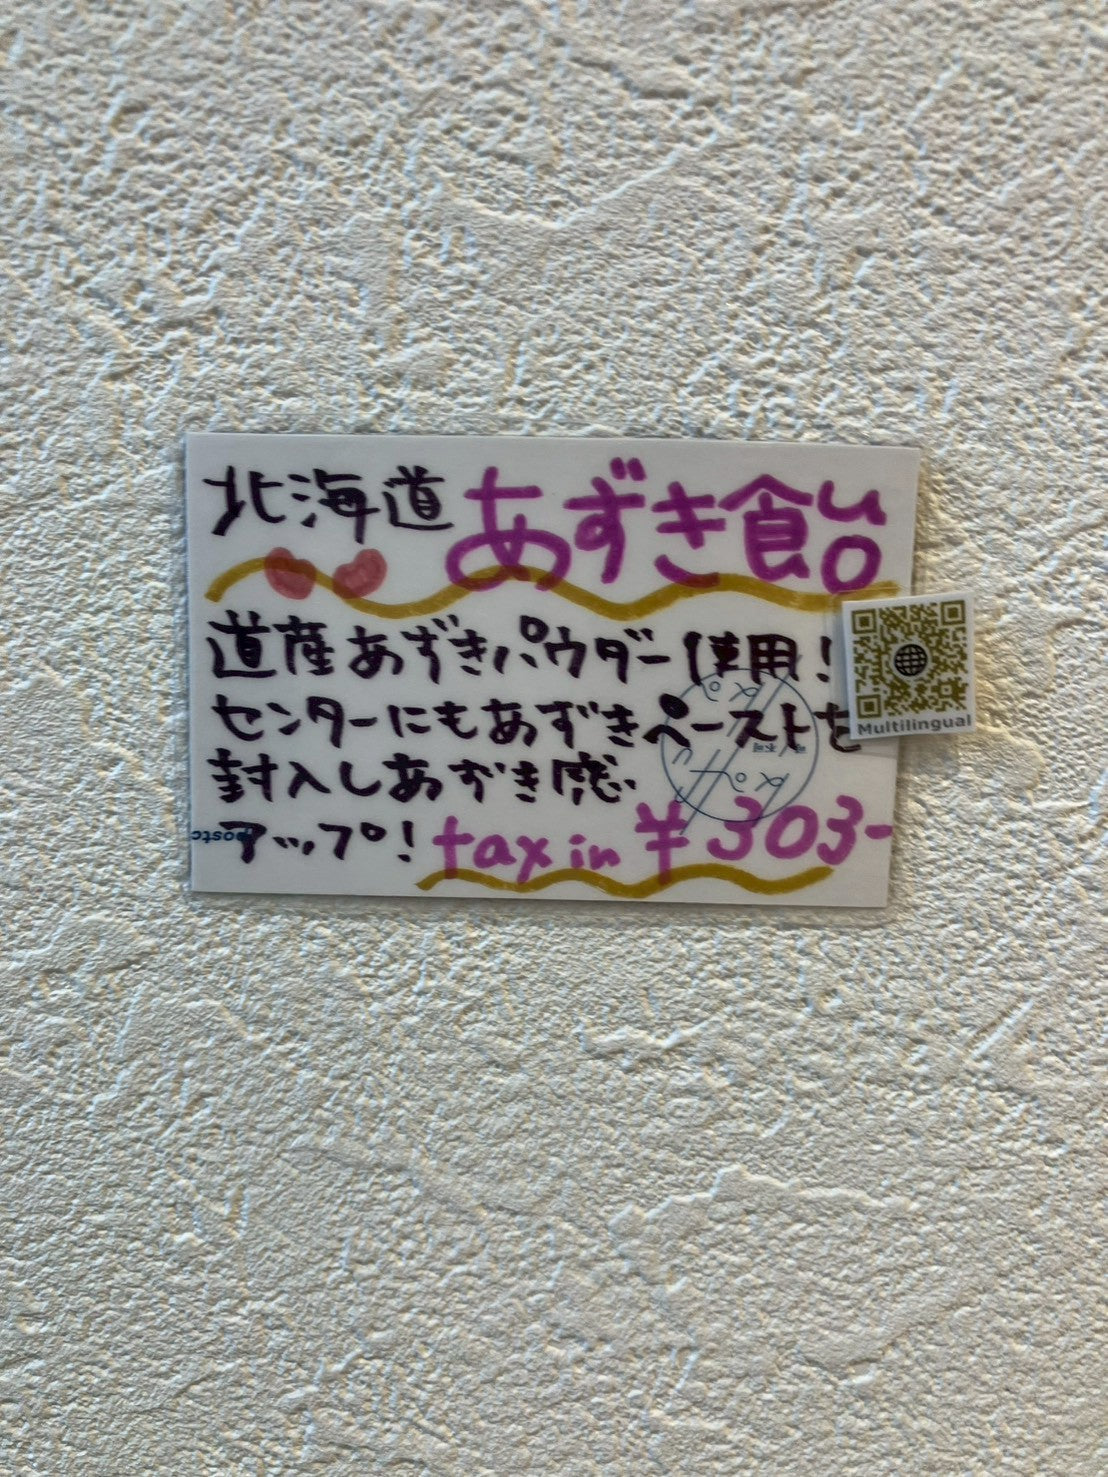 北海道 あずき飴
道産あずきパウダー使用!
センターにもあずきペーストを
封入しあずき感
アップ! tax in ¥303-
Multilingual